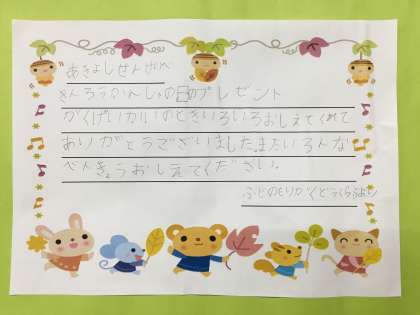 あきよしせんせいへ
きんろうかんしゃの日のプレゼント
がくげいかいのときいろいろおしえてくれて
ありがとうございました。またいろんな
べんきょうおしえてください。
ふじのもりがくどうくらぶより